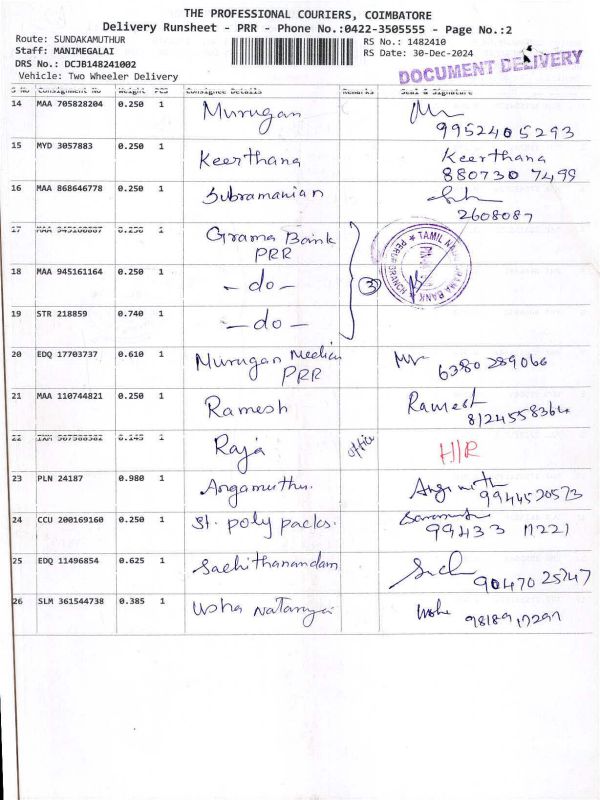 THE PROFESSIONAL COURIERS, COIMBATORE
Delivery Runsheet - PRR - Phone No.:0422-3505555 - Page No.:2
Route: SUNDAKAMUTHUR RS No.: 1482410
Staff: MANIMEGALAI RS Date: 30-Dec-2024
DRS No.: DCJB148241002
Vehicle: Two Wheeler Delivery
DOCUMENT DELIVERY
S No Consignment No Weight PCS Consignee Details Remarks Seal & Signature
14 MAA 705828204 0.250 1 Murugan
9952405293
15 MYD 3057883 0.250 1 Keerthana Keerthana
880730 7499
16 MAA 868646778 0.250 1 Subramanian
2608087
17 MAA 1 Grama Bank
PRR
TAMIL NADU GRAMA BANK
PERUR BRANCH
18 MAA 945161164 0.250 1 - do - 3
19 STR 218859 0.740 1 - do -
20 EDQ 17703737 0.610 1 Murugan
PRR 6380289066
21 MAA 110744821 0.250 1 Ramesh Ramesh
8124558364
22 0.145 1 Raja office H/R
23 PLN 24187 0.980 1 Angamuthu.
24 CCU 200169160 0.250 1 St. poly packs.
99433 11221
25 EDQ 11496854 0.625 1 Sachithanandam
90470 25747
26 SLM 361544738 0.385 1 Usha